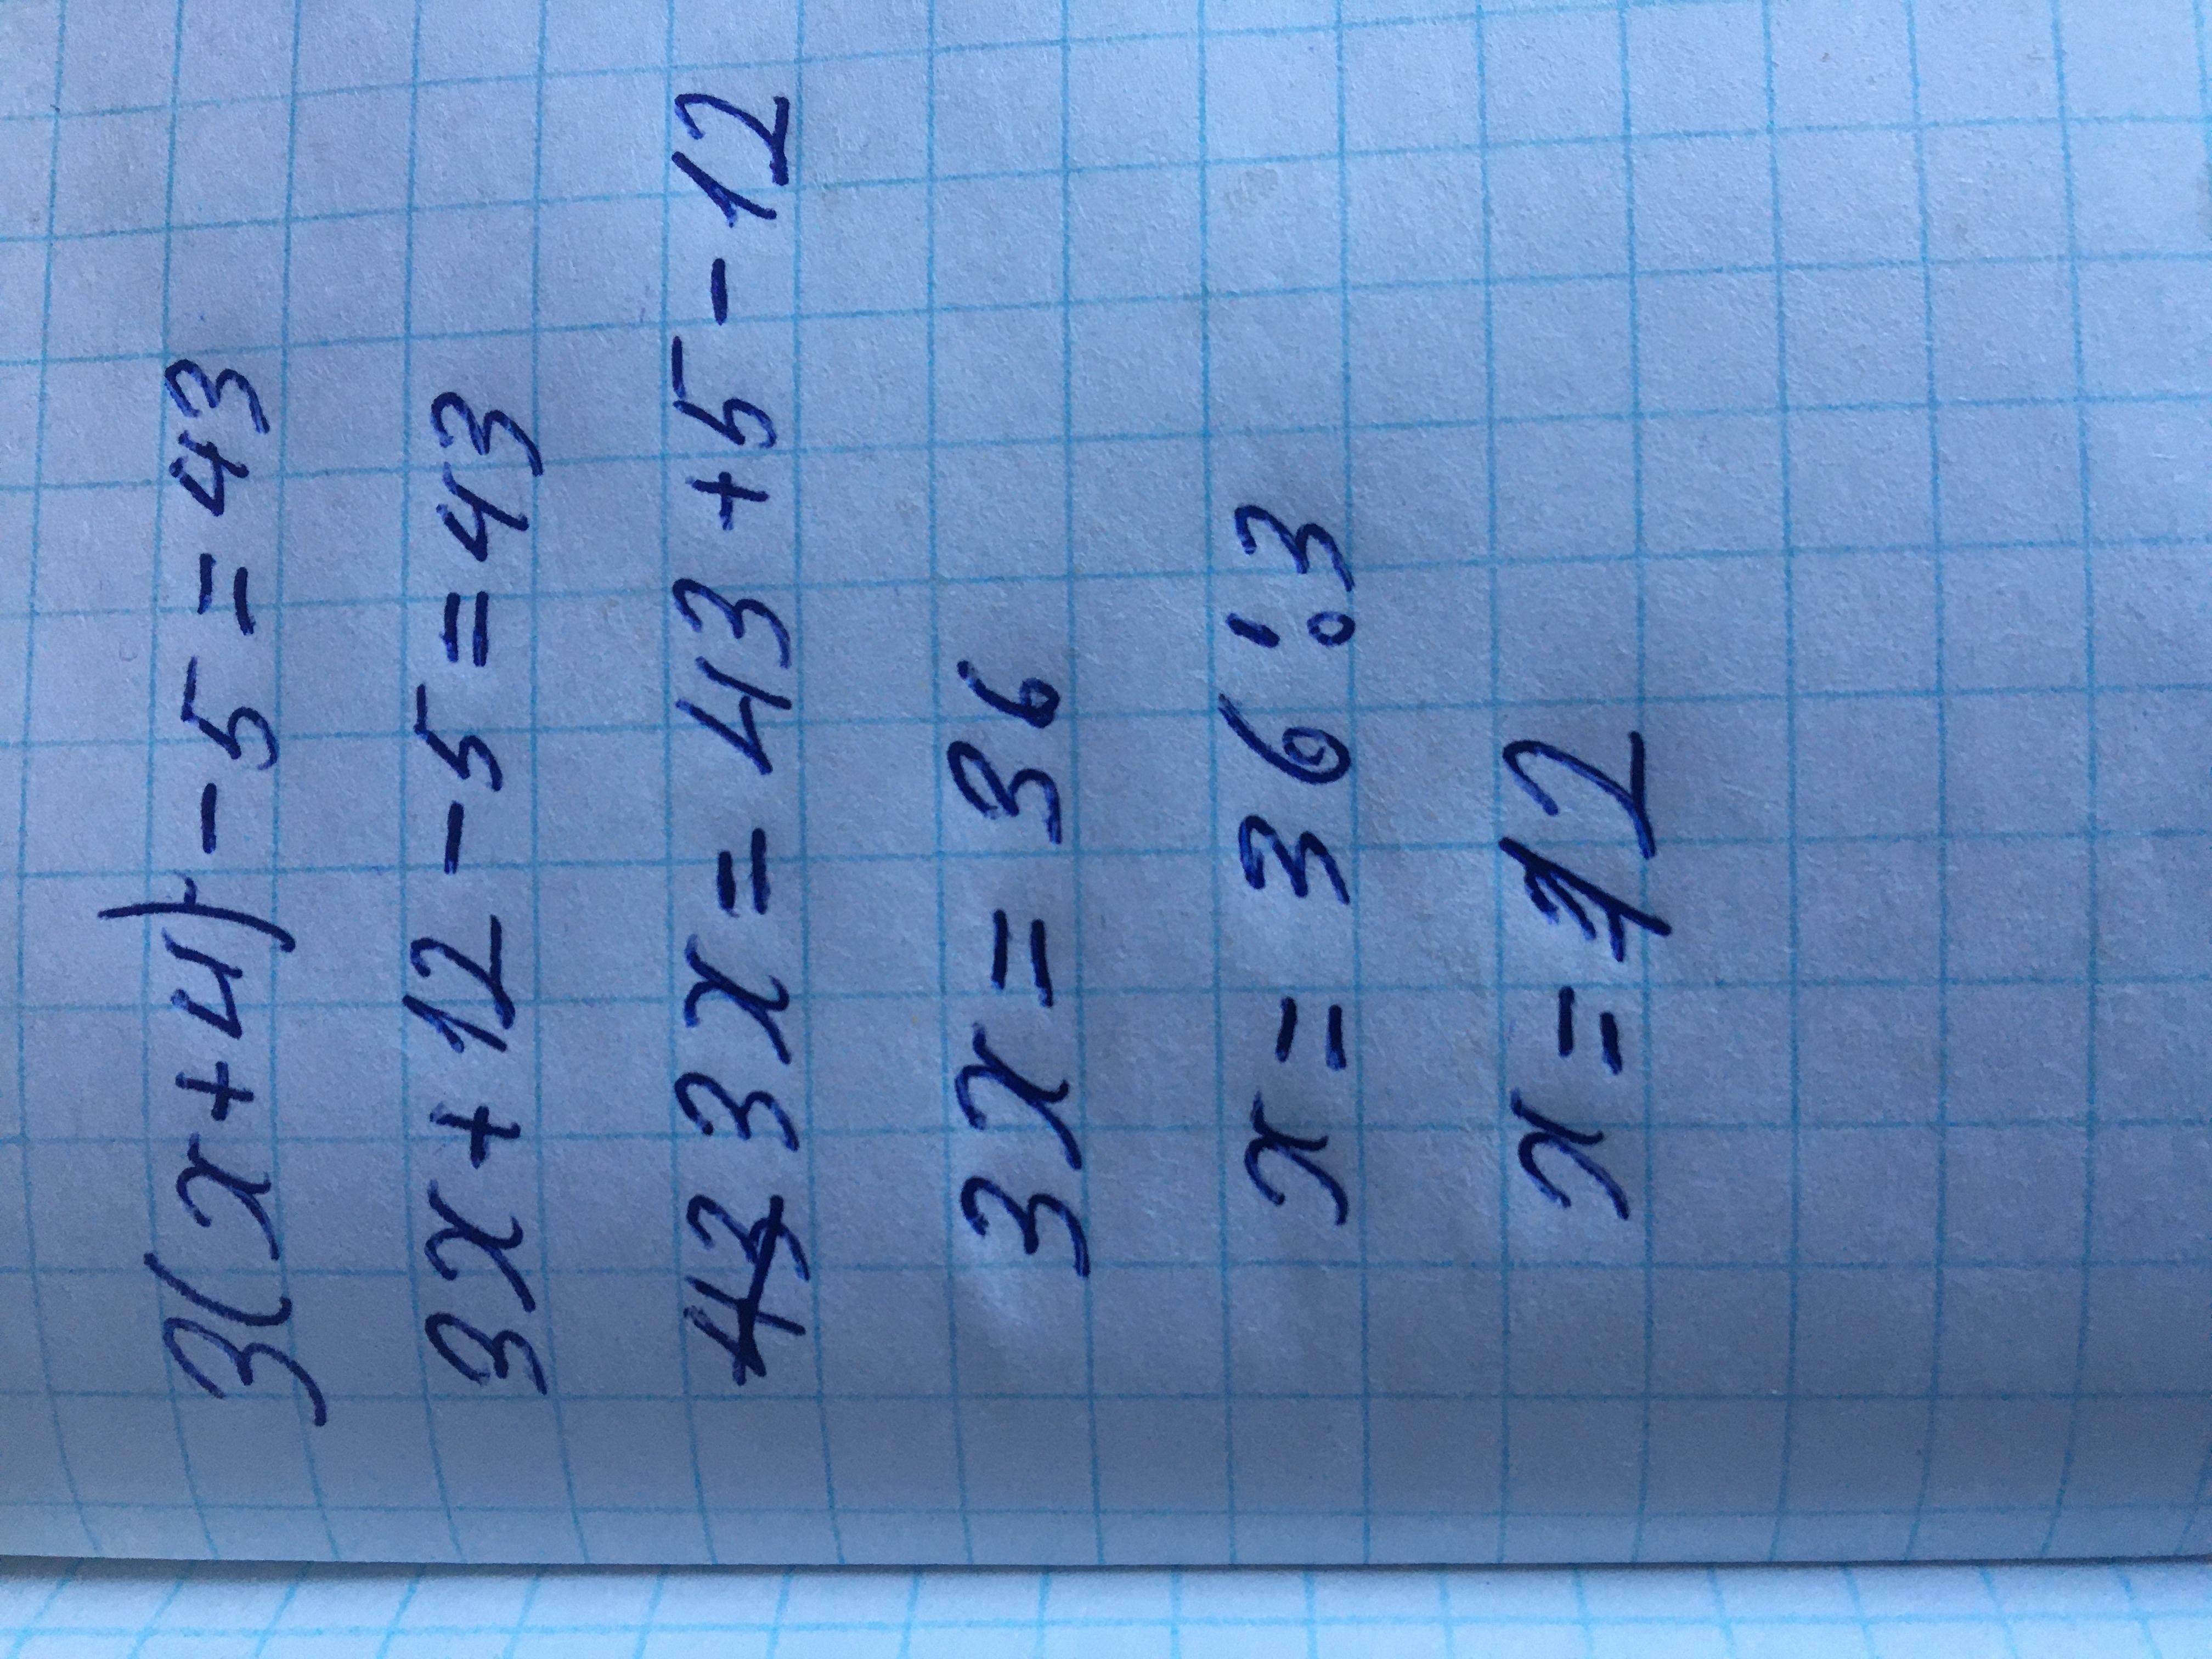 3(x+4)-5=43
3x+12-5=43
3x=43+5-12
3x=36
x=36:3
x=12